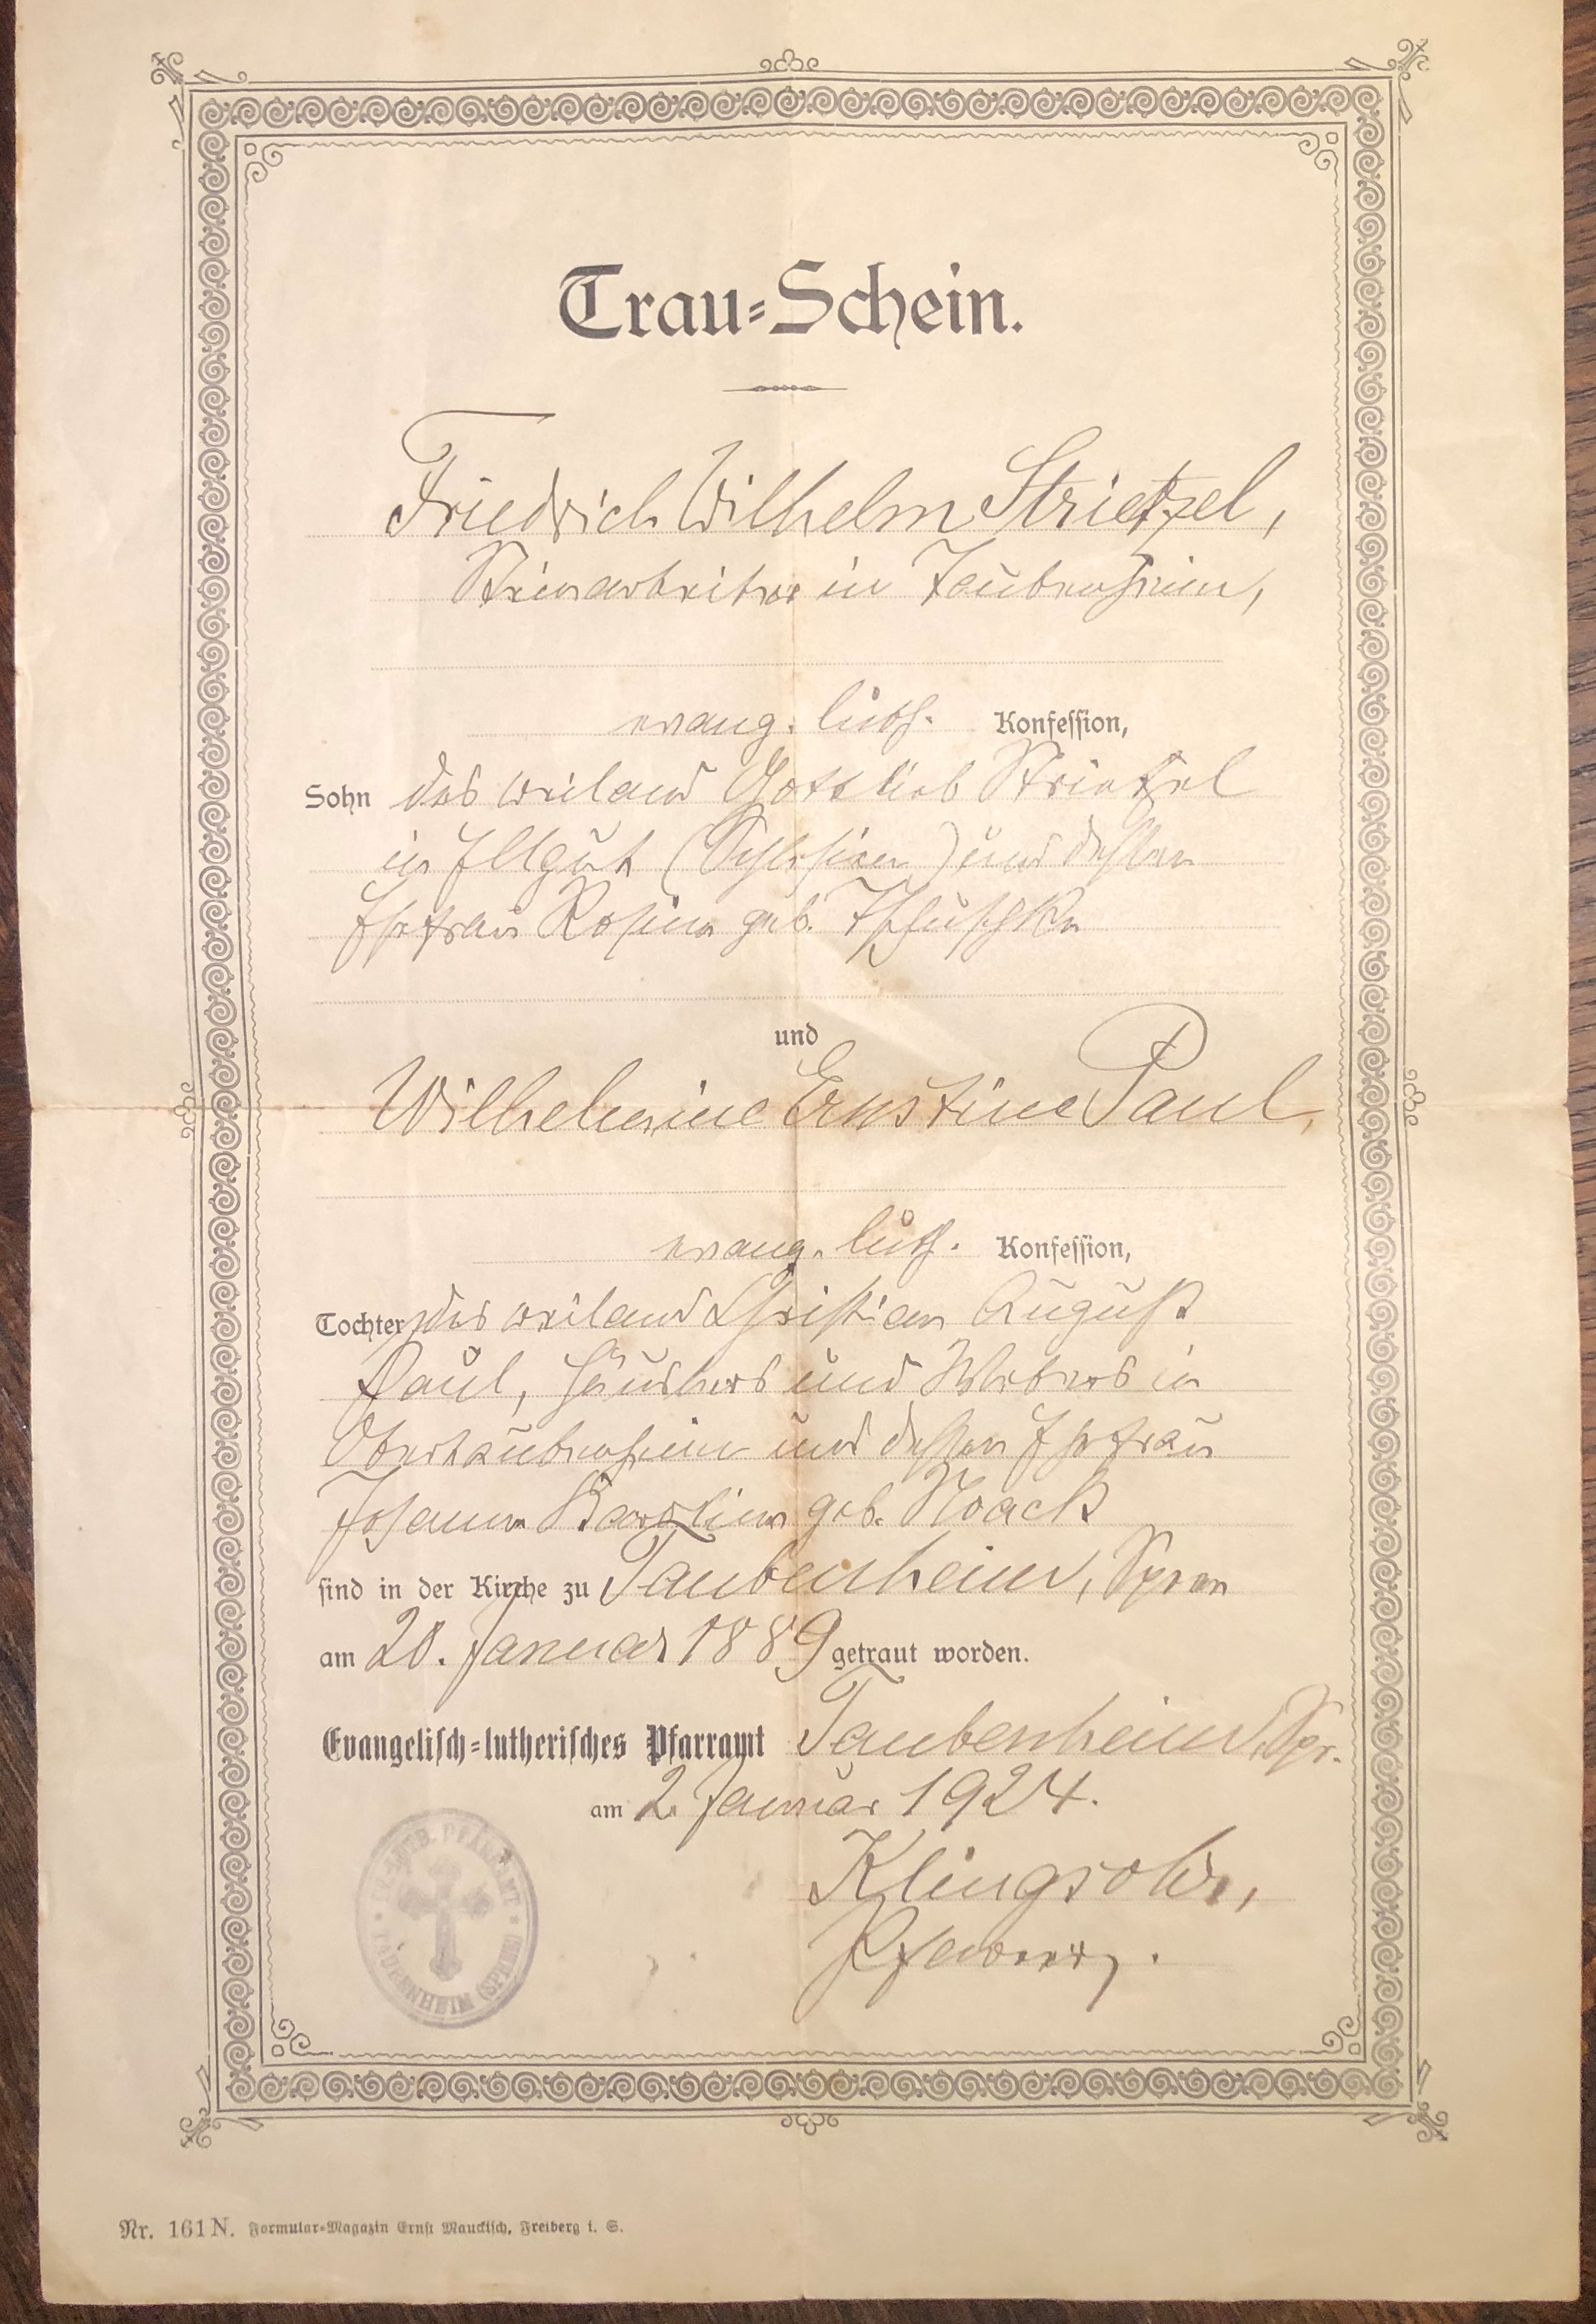 Trau-Schein.
Friedrich Wilhelm Strietzel,
Steinarbeiter in Taubenheim,
evang. luth. Konfession,
Sohn des weiland Gottlieb Strietzel
in Ellgut (Schlesien) und dessen
Ehefrau Rosina geb.
und
Wilhelmine Ernstine Paul,
evang. luth. Konfession,
Tochter des weiland Christian August
Paul, Häuslers und Webers in
Obertaubenheim und dessen Ehefrau
Johanna Karoline geb. Noack
sind in der Kirche zu Taubenheim, Spree
am 20. Januar 1889 getraut worden.
Evangelisch-lutherisches Pfarramt Taubenheim, Spr.
am 2. Januar 1924.
Klingsohr,
Pfarrer.
EV. LUTH. PFARRAMT
TAUBENHEIM (SPREE)
Nr. 161 N. Formular-Magazin Ernst Mauckisch, Freiberg i. S.